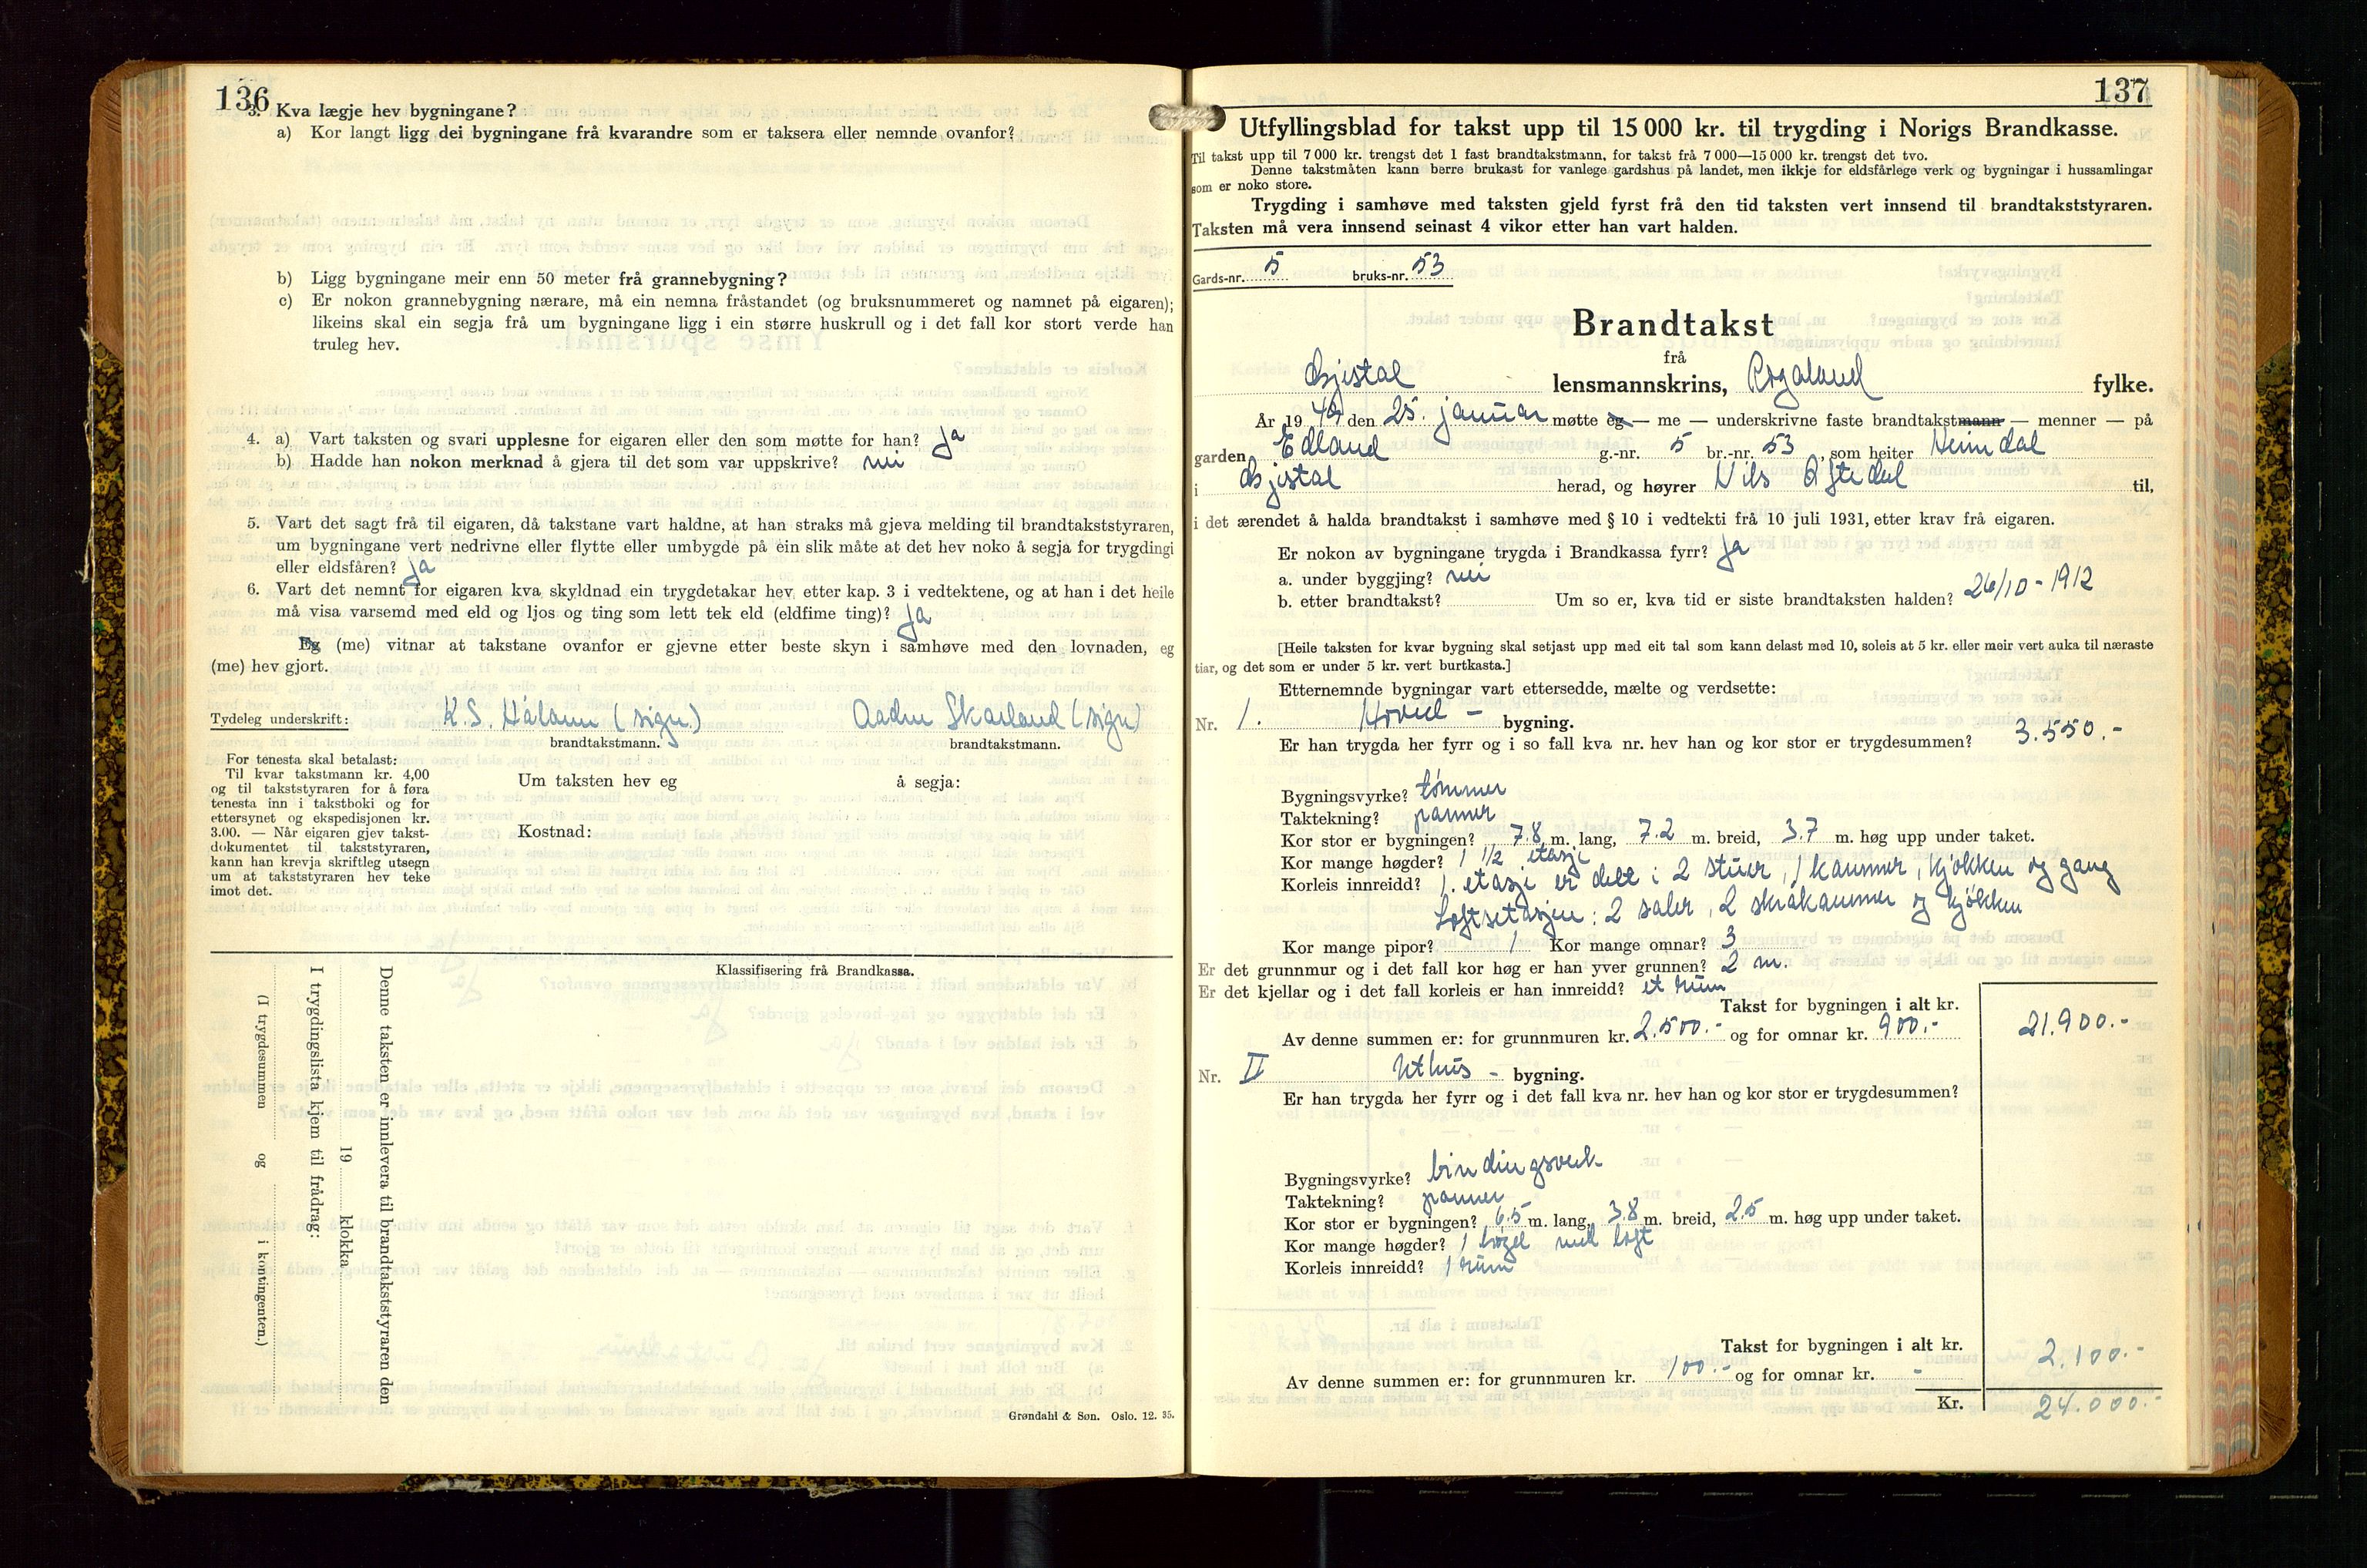 136
3. Kva lægje hev bygningane?
a) Kor langt ligg dei bygningane frå kvarandre som er taksera eller nemnde ovanfor?
b) Ligg bygningane meir enn 50 meter frå grannebygning?
c) Er nokon grannebygning nærare, må ein nemna fråstandet (og bruksnummeret og namnet på eigaren);
likeins skal ein segja frå um bygningane ligg i ein større huskrull og i det fall kor stort verde han
truleg hev.
4. a) Vart taksten og svari upplesne for eigaren eller den som møtte for han? Ja
b) Hadde han nokon merknad å gjera til det som var uppskrive? nei
5. Vart det sagt frå til eigaren, då takstane vart haldne, at han straks må gjeva melding til brandtakststyraren,
um bygningane vert nedrivne eller flytte eller umbygde på ein slik måte at det hev noko å segja for trygdingi
eller eldsfåren? ja
6. Vart det nemnt for eigaren kva skyldnad ein trygdetakar hev etter kap. 3 i vedtektene, og at han i det heile
må visa varsemd med eld og ljos og ting som lett tek eld (eldfime ting)? Ja
Eg (me) vitnar at takstane ovanfor er gjevne etter beste skyn i samhøve med den lovnaden, eg
(me) hev gjort.
Tydeleg underskrift: K. S. Håland (sign.) Aadne Skarland (sign)
brandtakstmann. brandtakstmann.
For tenesta skal betalast:
Til kvar takstmann kr. 4,00
og til takststyraren for å føra
tenesta inn i takstboki og for
ettersynet og ekspedisjonen kr.
3.00. — Når eigaren gjev takst-
dokumentet til takststyraren,
kann han krevja skriftleg utsegn
um at takststyraren hev teke
imot det.
Um taksten hev eg å segja:
Kostnad:
Klassifisering frå Brandkassa.
Denne taksten er innlevera til brandtakststyraren den
19 klokka
I trygdingslista kjem til frådrag:
(I trygdesummen og i kontingenten.)
Grøndahl & Søn. Oslo. 12. 35.
137
Utfyllingsblad for takst upp til 15 000 kr. til trygding i Norigs Brandkasse.
Til takst upp til 7 000 kr. trengst det 1 fast brandtakstmann, for takst frå 7 000—15 000 kr. trengst det tvo.
Denne takstmåten kann berre brukast for vanlege gardshus på landet, men ikkje for eldsfårlege verk og bygningar i hussamlingar
som er noko store.
Trygding i samhøve med taksten gjeld fyrst frå den tid taksten vert innsend til brandtakststyraren.
Taksten må vera innsend seinast 4 vikor etter han vart halden.
Gards-nr. 5 bruks-nr. 53
Brandtakst
frå
Gjestal lensmannskrins, Rogaland fylke.
År 19 49 den 25. januar møtte eg — me — underskrivne faste brandtakstmann — menner — på
garden Edland g.-nr. 5 br.-nr. 53, som heiter Heimdal
i Gjestal herad, og høyrer Nils Aftedal til,
i det ærendet å halda brandtakst i samhøve med § 10 i vedtekti frå 10 juli 1931, etter krav frå eigaren.
Er nokon av bygningane trygda i Brandkassa fyrr? Ja
a. under byggjing? nei
b. etter brandtakst? Um so er, kva tid er siste brandtaksten halden? 26/10 - 1912
[Heile taksten for kvar bygning skal setjast upp med eit tal som kann delast med 10, soleis at 5 kr. eller meir vert auka til næraste
tiar, og det som er under 5 kr. vert burtkasta.]
Etternemnde bygningar vart ettersedde, mælte og verdsette:
Nr. 1. Hoved - bygning.
Er han trygda her fyrr og i so fall kva nr. hev han og kor stor er trygdesummen? 3.550.-
Bygningsvyrke? tømmer
Taktekning? panner
Kor stor er bygningen? 7.8 m. lang, 7.2 m. breid, 3.7 m. høg upp under taket.
Kor mange høgder? 1 1/2 etasje
Korleis innreidd? 1. etasje er delt i 2 stuer, 1 kammer, kjøkken og gang
Loftsetasjen: 2 saler, 2 skråkammer og kjøkken
Kor mange pipor? 1 Kor mange omnar? 3
Er det grunnmur og i det fall kor høg er han yver grunnen? 2 m.
Er det kjellar og i det fall korleis er han innreidd? et rum
Takst for bygningen i alt kr. 21.900.-
Av denne summen er: for grunnmuren kr. 2.500.- og for omnar kr. 900.-
Nr. II Uthus - bygning.
Er han trygda her fyrr og i det fall kva nr. hev han og kor stor er trygdesummen?
Bygningsvyrke? bindingsverk
Taktekning? panner
Kor stor er bygningen? 6.5 m. lang, 3.8 m. breid, 2.5 m. høg upp under taket.
Kor mange høgder? 1 høgd med loft
Korleis innreidd? 1 rum
Takst for bygningen i alt kr. 2.100.-
Av denne summen er: for grunnmuren kr. 100.- og for omnar kr. -
Kr. 24.000.-